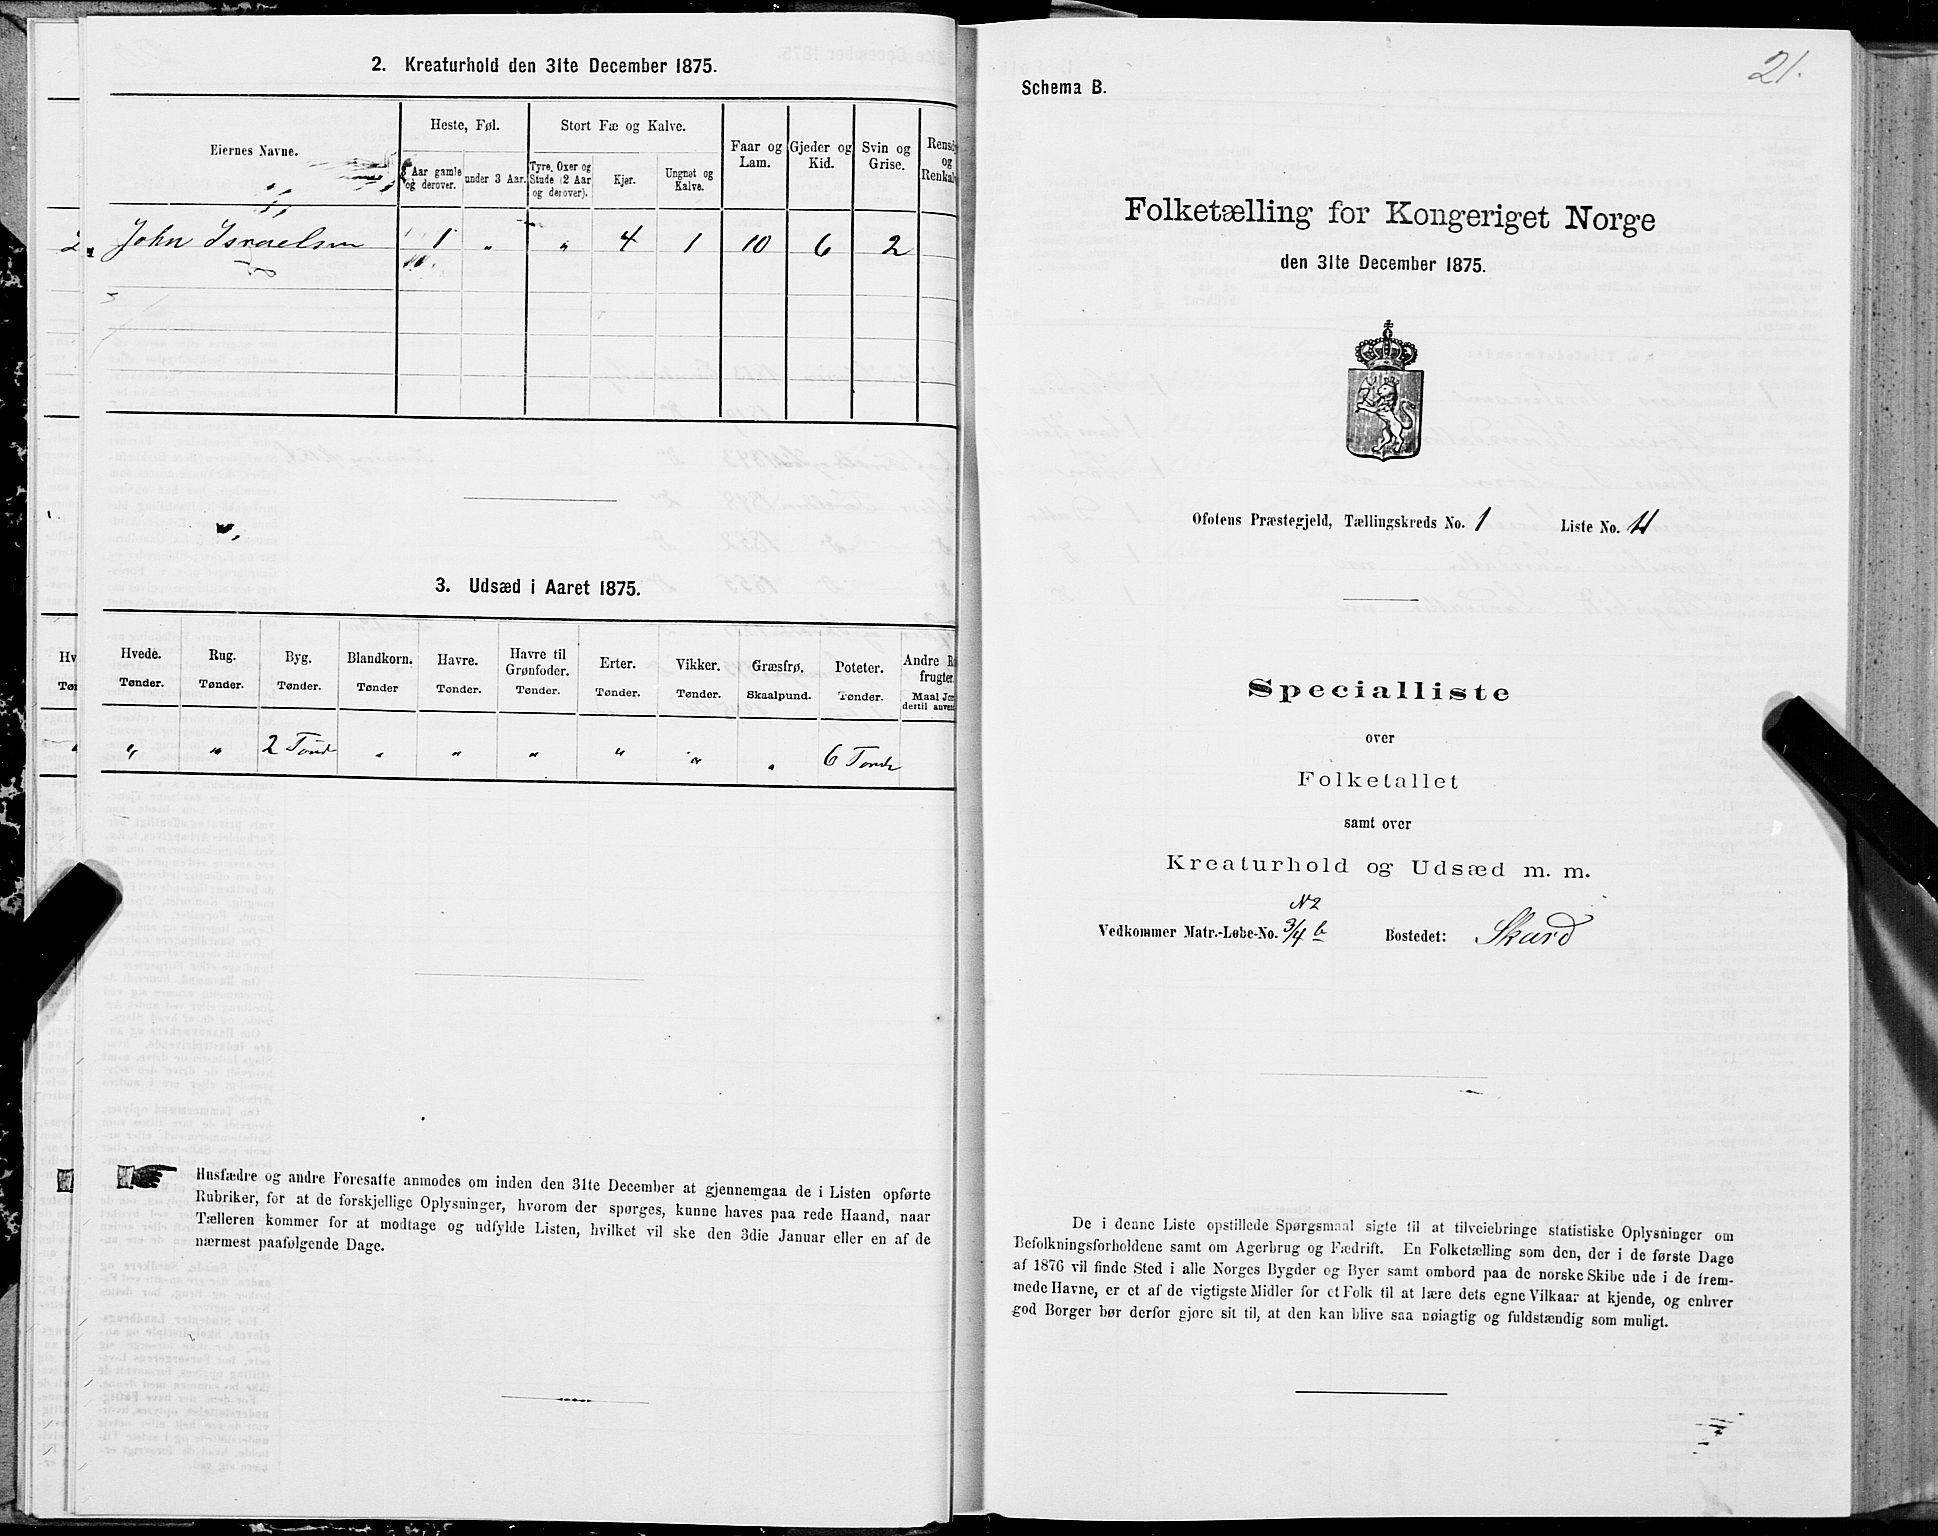 2. Kreaturhold den 31te December 1875.
Eiernes Navne.
Heste, Føl.
Stort Fæ og Kalve.
Faar og Lam.
Gjeder og Kid.
Svin og Grise.
Aar gamle og derover.
under 3 Aar.
Tyre, Oxer og Stude (2 Aar og derover).
Kjør.
Ungnøt og Kalve.
John Israelsen 1 " " 4 1 10 6 2
3. Udsæd i Aaret 1875.
Hvede. Rug. Byg. Blandkorn. Havre. Havre til Grønfoder. Erter. Vikker. Græsfrø. Poteter. Andre
Tønder. Tønder. Tønder. Tønder Tønder. Tønder. Tønder. Tønder. Skaalpund. Tønder. Maal
" " 2 Tønde " " " " " " 6 Tønde
Husfædre og andre Foresatte anmodes om inden den 31te December at gjennemgaa de i Listen opførte
Rubriker, for at de forskjellige Oplysninger, hvorom der spørges, kunne haves paa rede Haand, naar
Tælleren kommer for at modtage og udfylde Listen, hvilket vil ske den 3die Januar eller en af de
nærmest paafølgende Dage.
21.
Schema B.
Folketælling for Kongeriget Norge
den 31te December 1875.
Ofotens Præstegjeld, Tællingskreds No. 1 Liste No. 4
Specialliste
over
Folketallet
samt over
Kreaturhold og Udsæd m. m.
N 2
Vedkommer Matr.-Løbe-No. 3/4 b Bostedet: Skard
De i denne Liste opstillede Spørgsmaal sigte til at tilveiebringe statistiske Oplysninger om
Befolkningsforholdene samt om Agerbrug og Fædrift. En Folketælling som den, der i de første Dage
af 1876 vil finde Sted i alle Norges Bygder og Byer samt ombord paa de norske Skibe ude i de frem-
mede Havne, er et af de vigtigste Midler for et Folk til at lære dets egne Vilkaar at kjende, og enhver
god Borger bør derfor gjøre sit til, at den kan blive saa nøiagtig og fuldstændig som muligt.